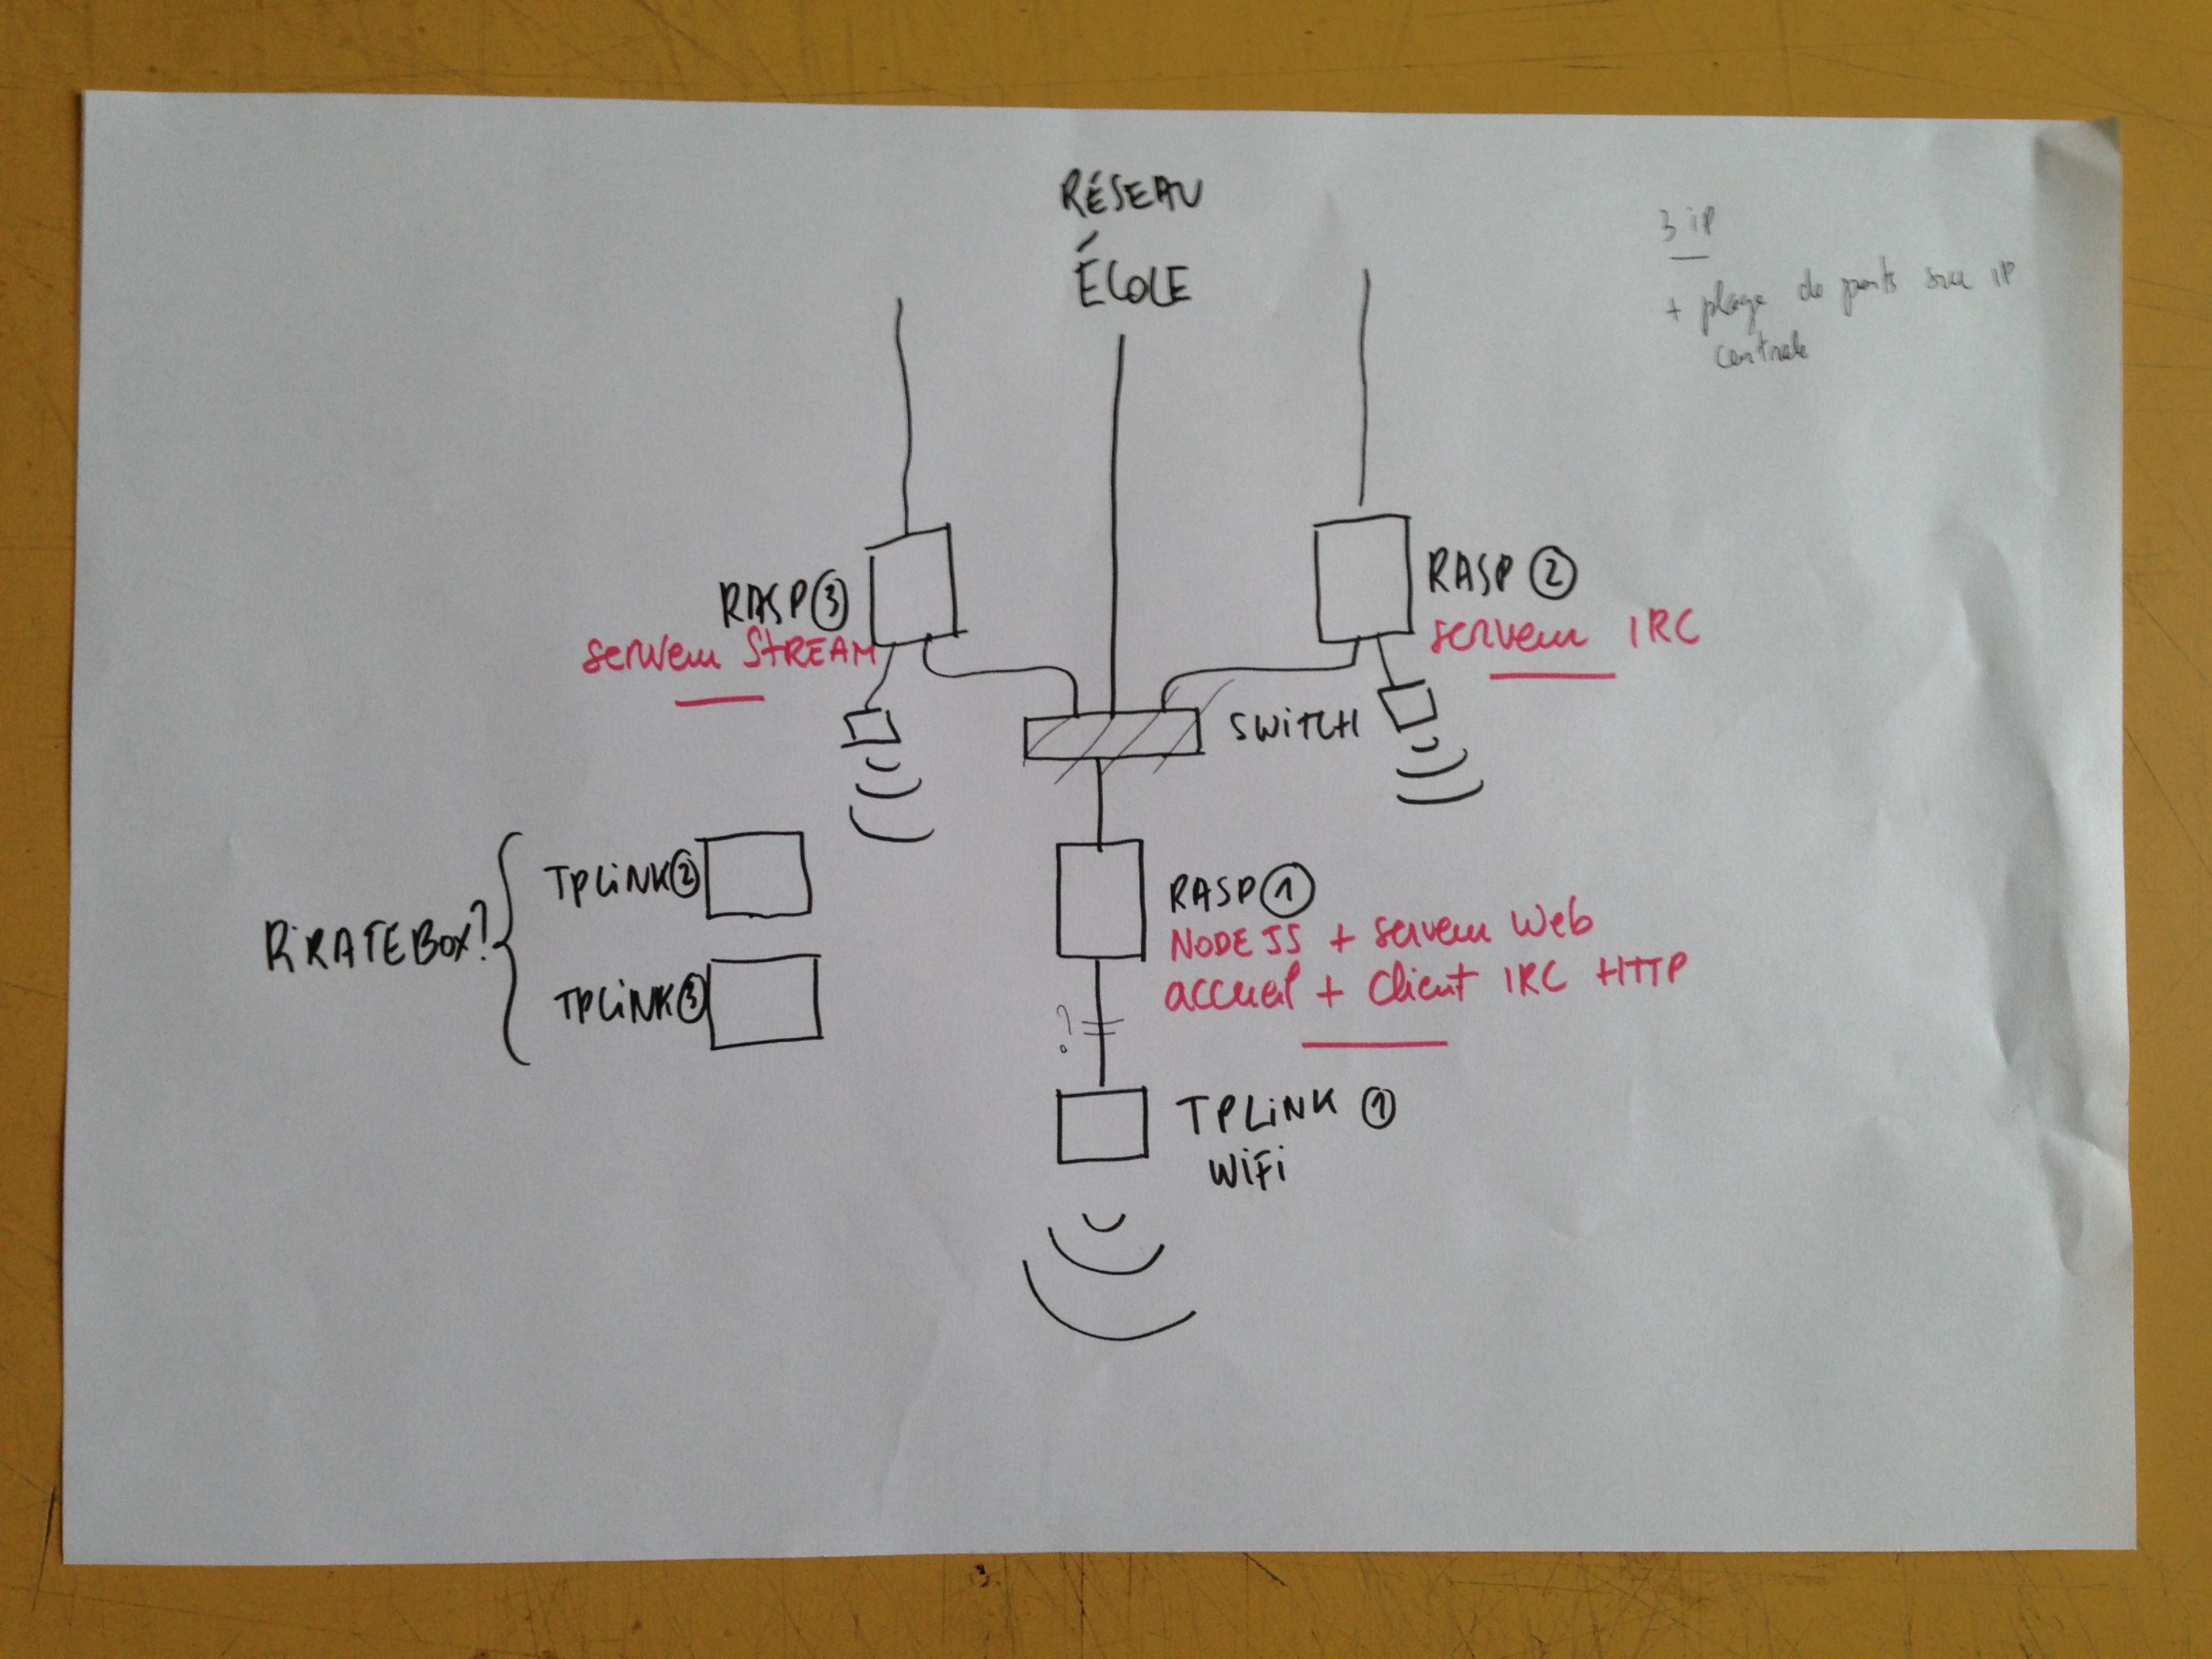 RÉSEAU
ÉCOLE
3 iP
+ plage de ports sur IP
centrale
RASP ③
serveur STREAM
RASP ②
serveur IRC
SWiTCH
PiRATEBOX?
TPLiNK ②
TPLiNK ③
RASP ①
NODE JS + serveur Web
accueil + Client IRC HTTP
?
TPLiNK ①
WiFi